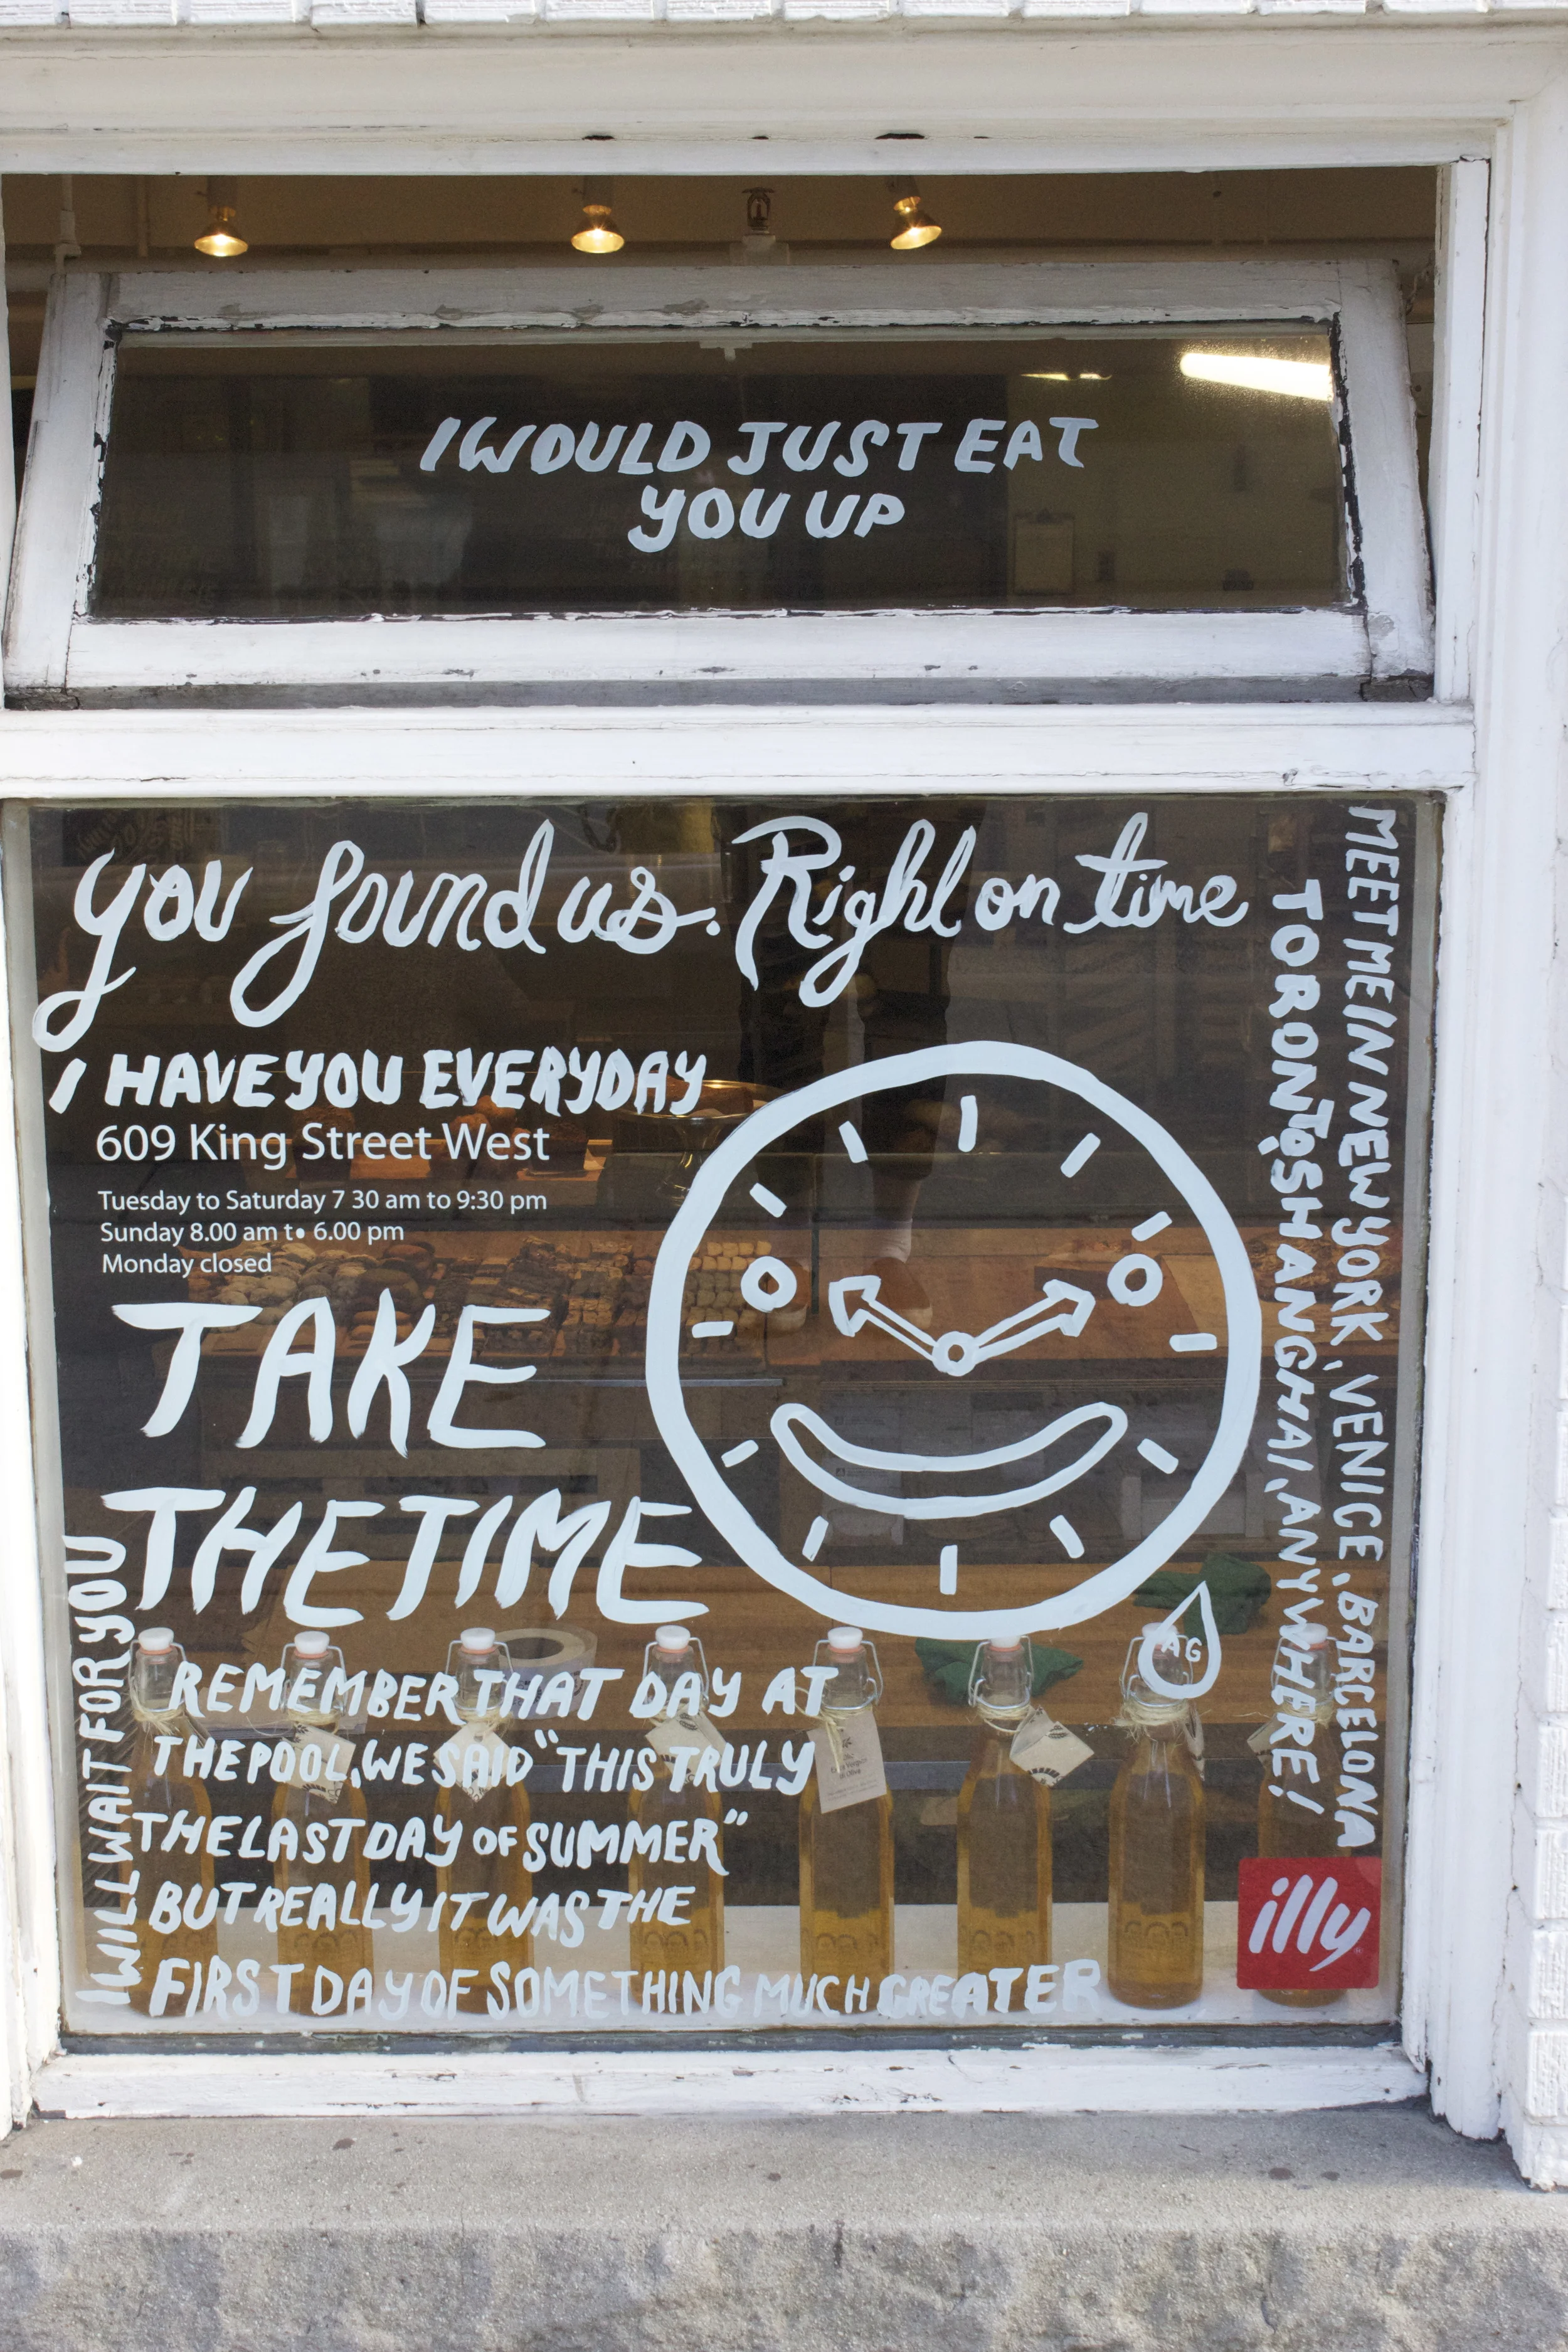 I WOULD JUST EAT
YOU UP
you found us. Right on time
I HAVE YOU EVERYDAY
609 King Street West
Tuesday to Saturday 7 30 am to 9:30 pm
Sunday 8.00 am to 6.00 pm
Monday closed
TAKE
THE TIME
REMEMBER THAT DAY AT
THE POOL, WE SAID "THIS TRULY
THE LAST DAY OF SUMMER"
BUT REALLY IT WAS THE
FIRST DAY OF SOMETHING MUCH GREATER
I WILL WAIT FOR YOU
MEET ME IN NEW YORK, VENICE, BARCELONA
TORONTO, SHANGHAI, ANYWHERE!
AG
illy